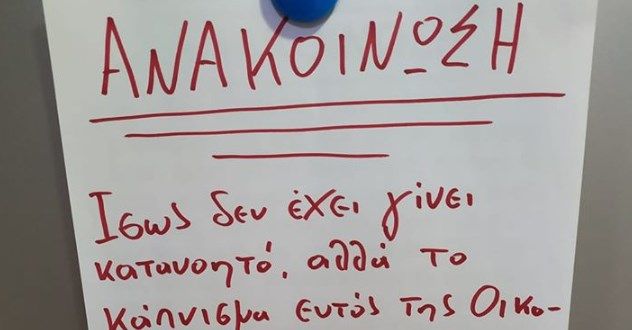 ΑΝΑΚΟΙΝΩΣΗ
Ισως δεν έχει γίνει
κατανοητό, αλλά το
κάπνισμα εντός της Οικο-